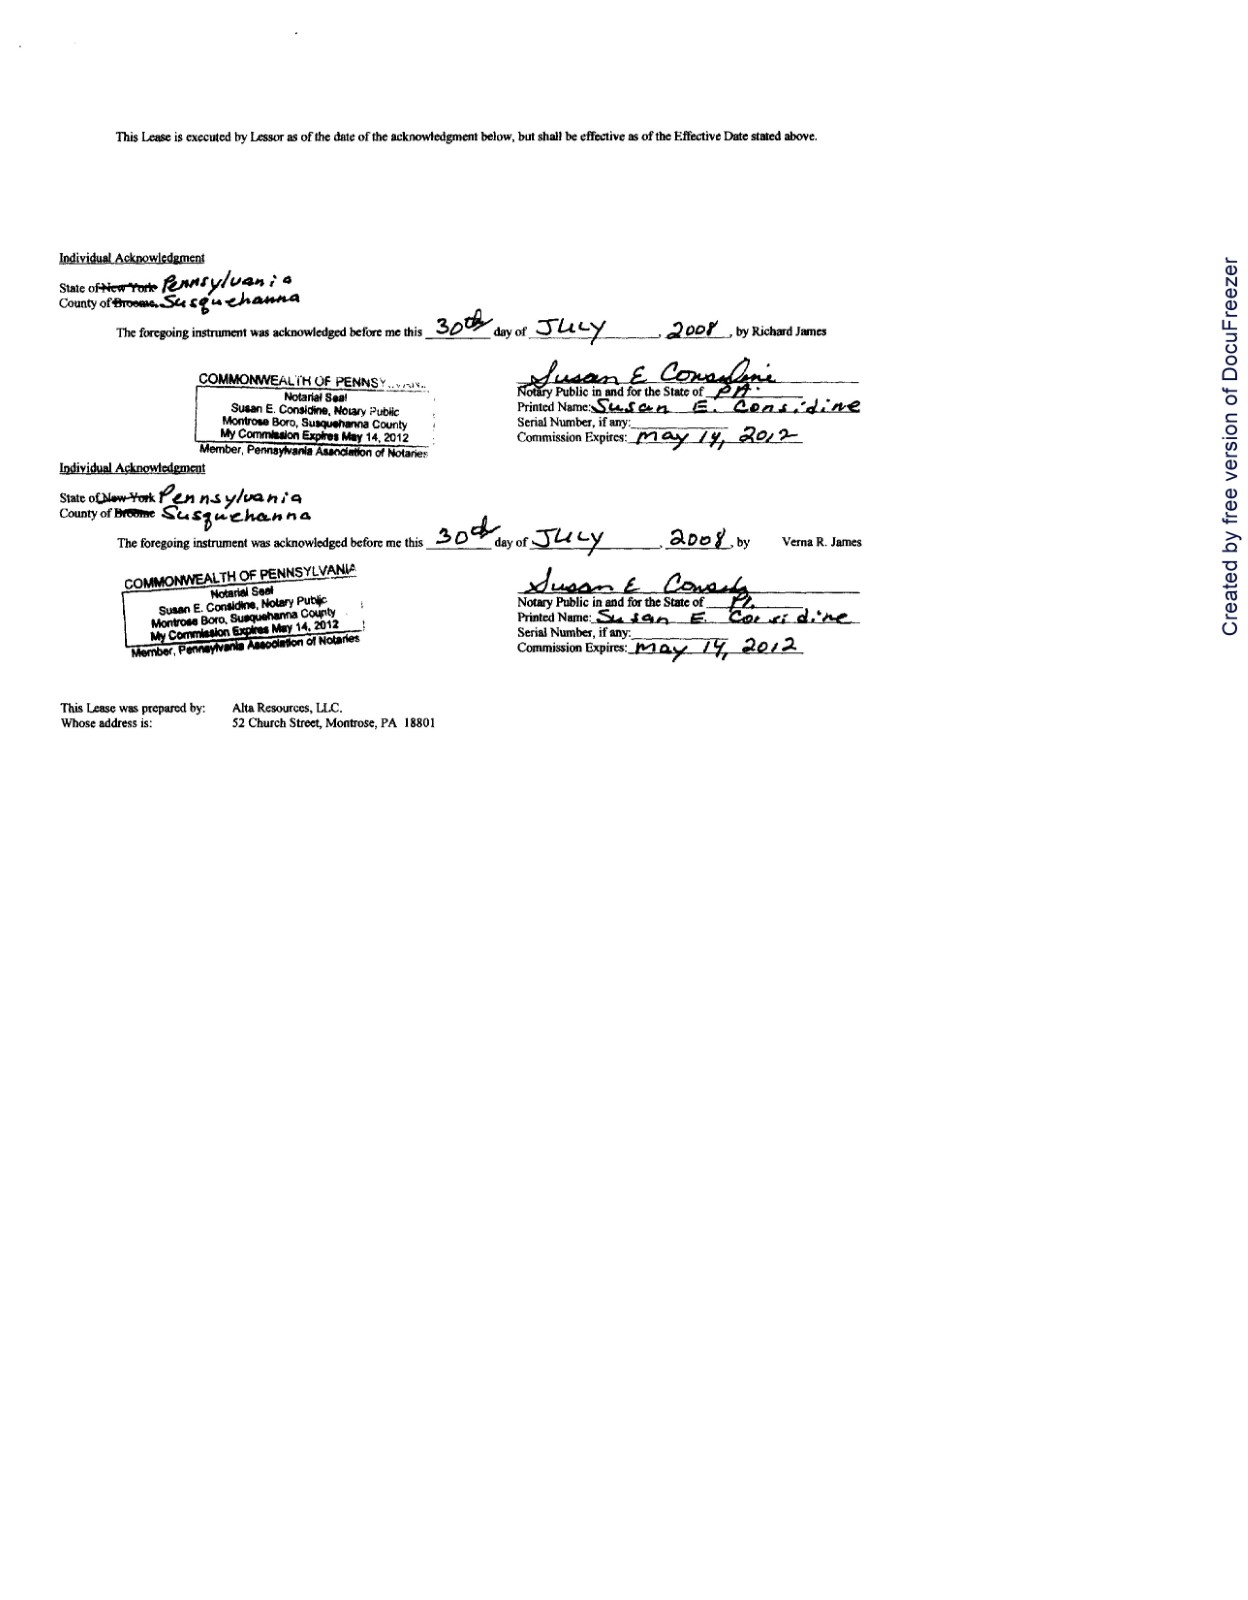 This Lease is executed by Lessor as of the date of the acknowledgment below, but shall be effective as of the Effective Date stated above.
Individual Acknowledgment
State of New York Pennsylvania
County of Broome Susquehanna
The foregoing instrument was acknowledged before me this 30th day of JULY, 2008, by Richard James
COMMONWEALTH OF PENNSY
Notarial Seal
Susan E. Considine, Notary Public
Montrose Boro, Susquehanna County
My Commission Expires May 14, 2012
Member, Pennsylvania Association of Notaries
Susan E Considine
Notary Public in and for the State of PA.
Printed Name: Susan E. Considine
Serial Number, if any:
Commission Expires: May 14, 2012
Individual Acknowledgment
State of New York Pennsylvania
County of Broome Susquehanna
The foregoing instrument was acknowledged before me this 30th day of JULY, 2008, by Verna R. James
COMMONWEALTH OF PENNSYLVANIA
Notarial Seal
Susan E. Considine, Notary Public
Montrose Boro, Susquehanna County
My Commission Expires May 14, 2012
Member, Pennsylvania Association of Notaries
Susan E
Notary Public in and for the State of
Printed Name: Susan E. Considine
Serial Number, if any:
Commission Expires: May 14, 2012
This Lease was prepared by: Alta Resources, LLC.
Whose address is: 52 Church Street, Montrose, PA 18801
Created by free version of DocuFreezer